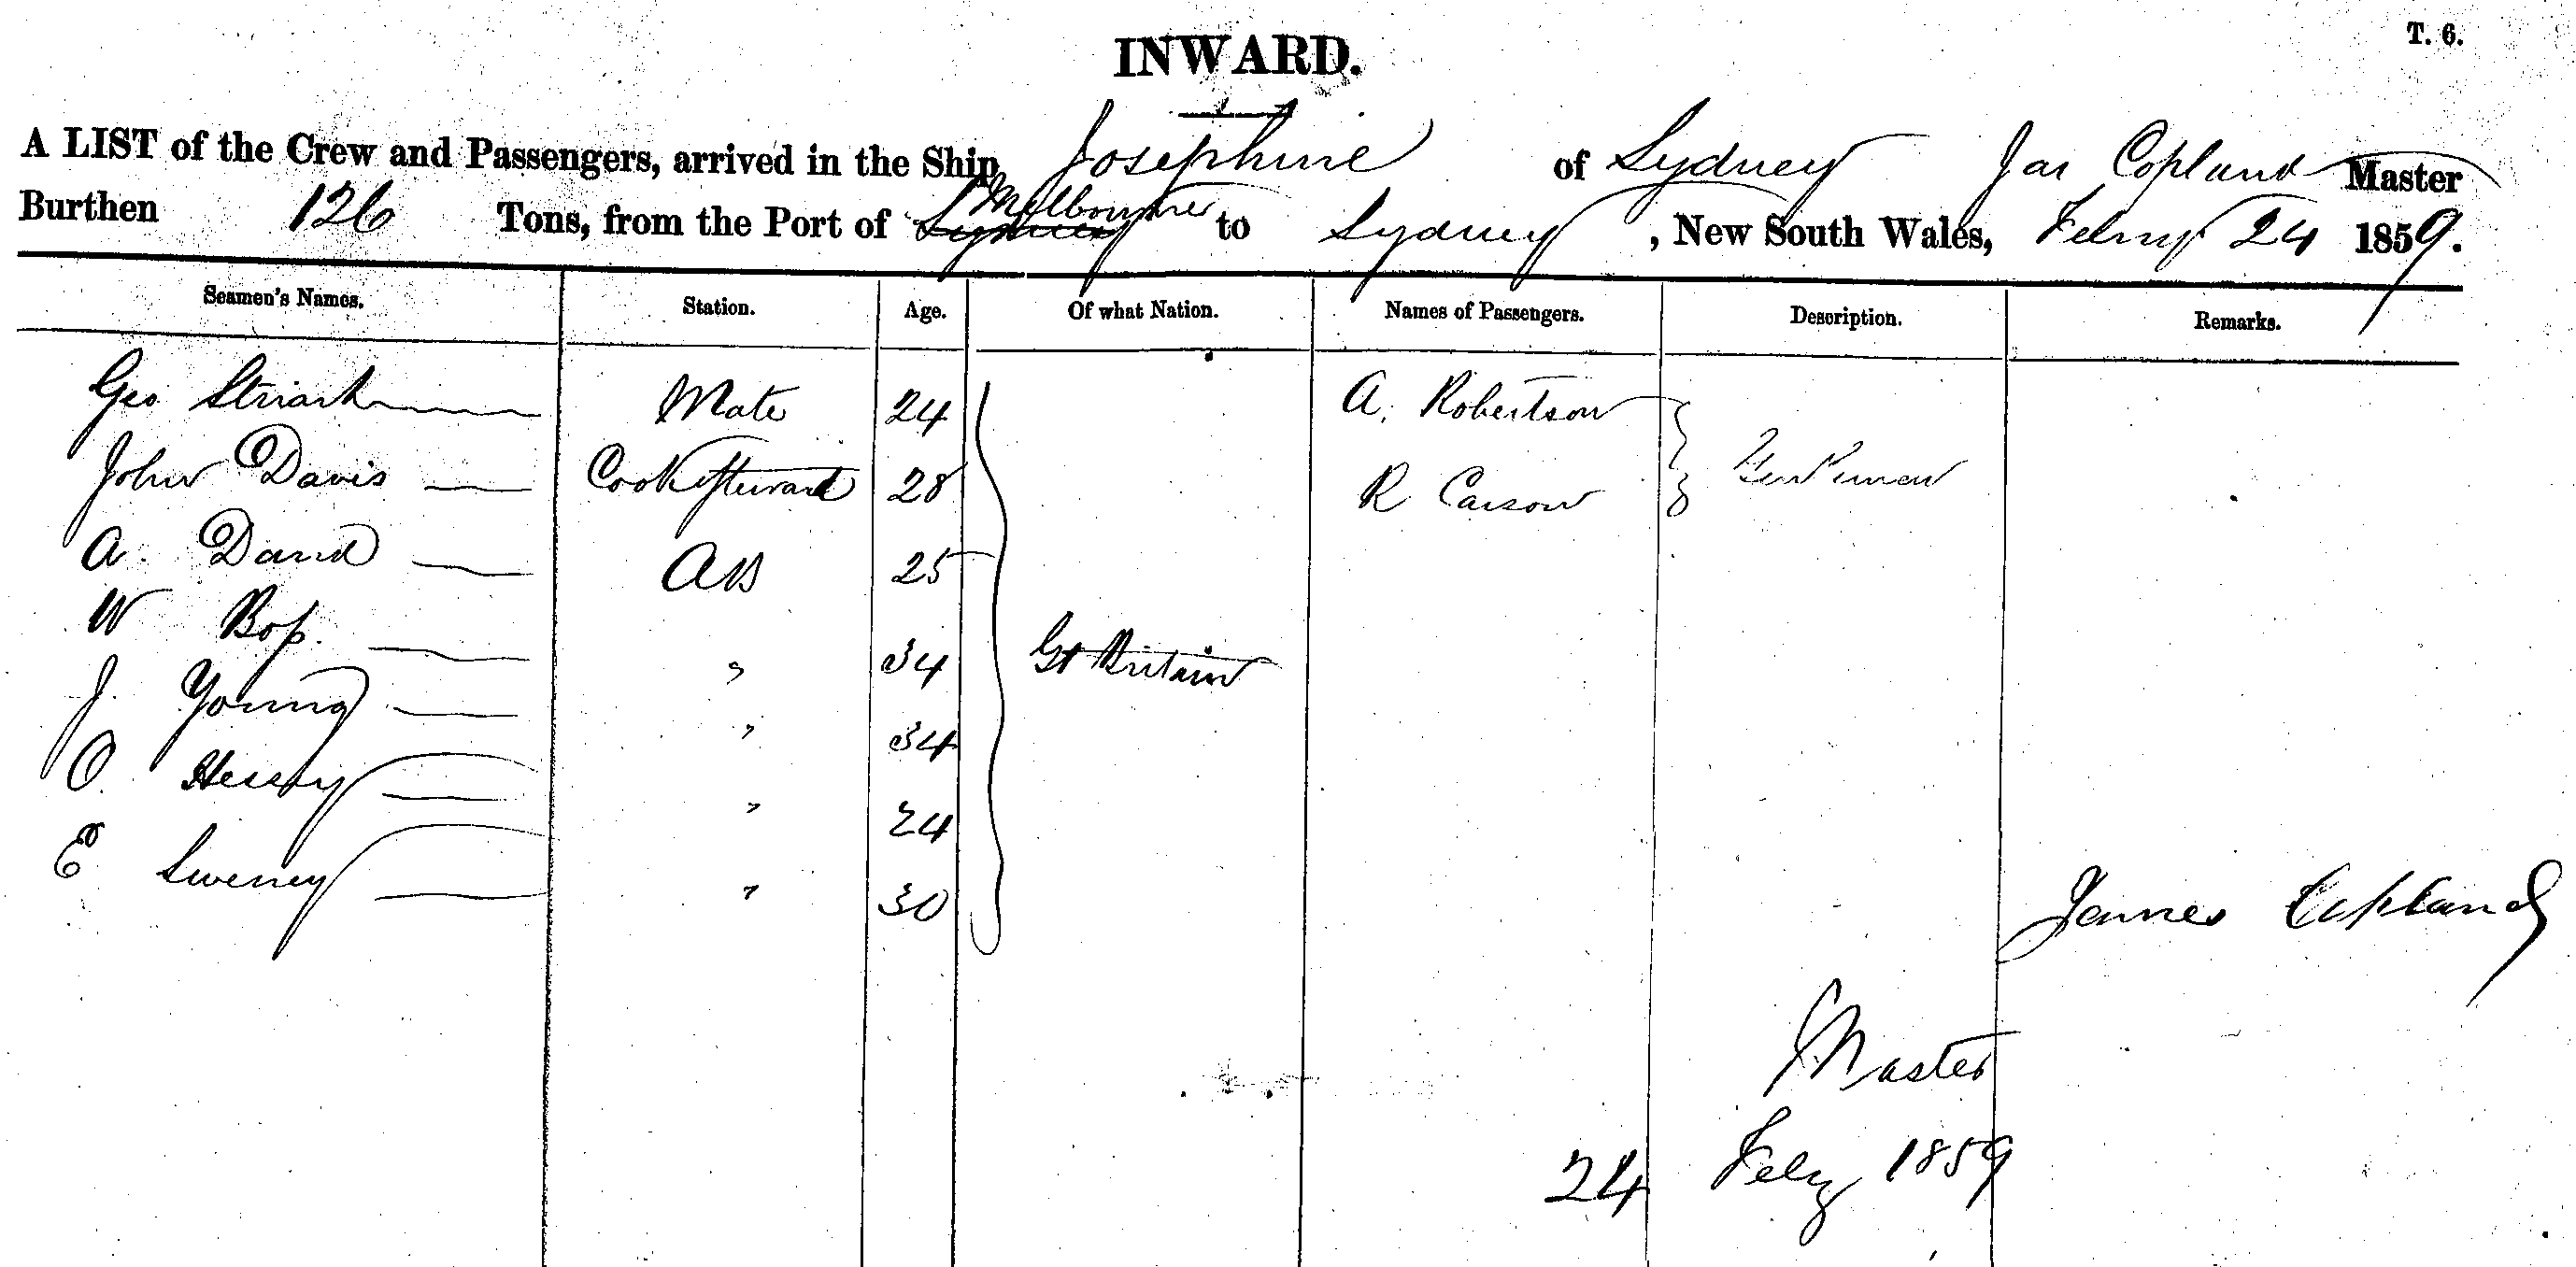 T. 6.
INWARD.
A LIST of the Crew and Passengers, arrived in the Ship Josephine of Sydney Jas Copland Master
Burthen 126 Tons, from the Port of Sydney Melbourne to Sydney, New South Wales, Febry 24 1859.
Seamen's Names. Station. Age. Of what Nation. Names of Passengers. Description. Remarks.
Geo Mate 24 A. Robertson
John Davis Cook & Steward 28 R Carson Gentlemen
A. David AB 25
W 34 Gt Britain
J. Young " 34
O. " 24
E Sweney " 30
James Copland
Master
24 Feby 1859